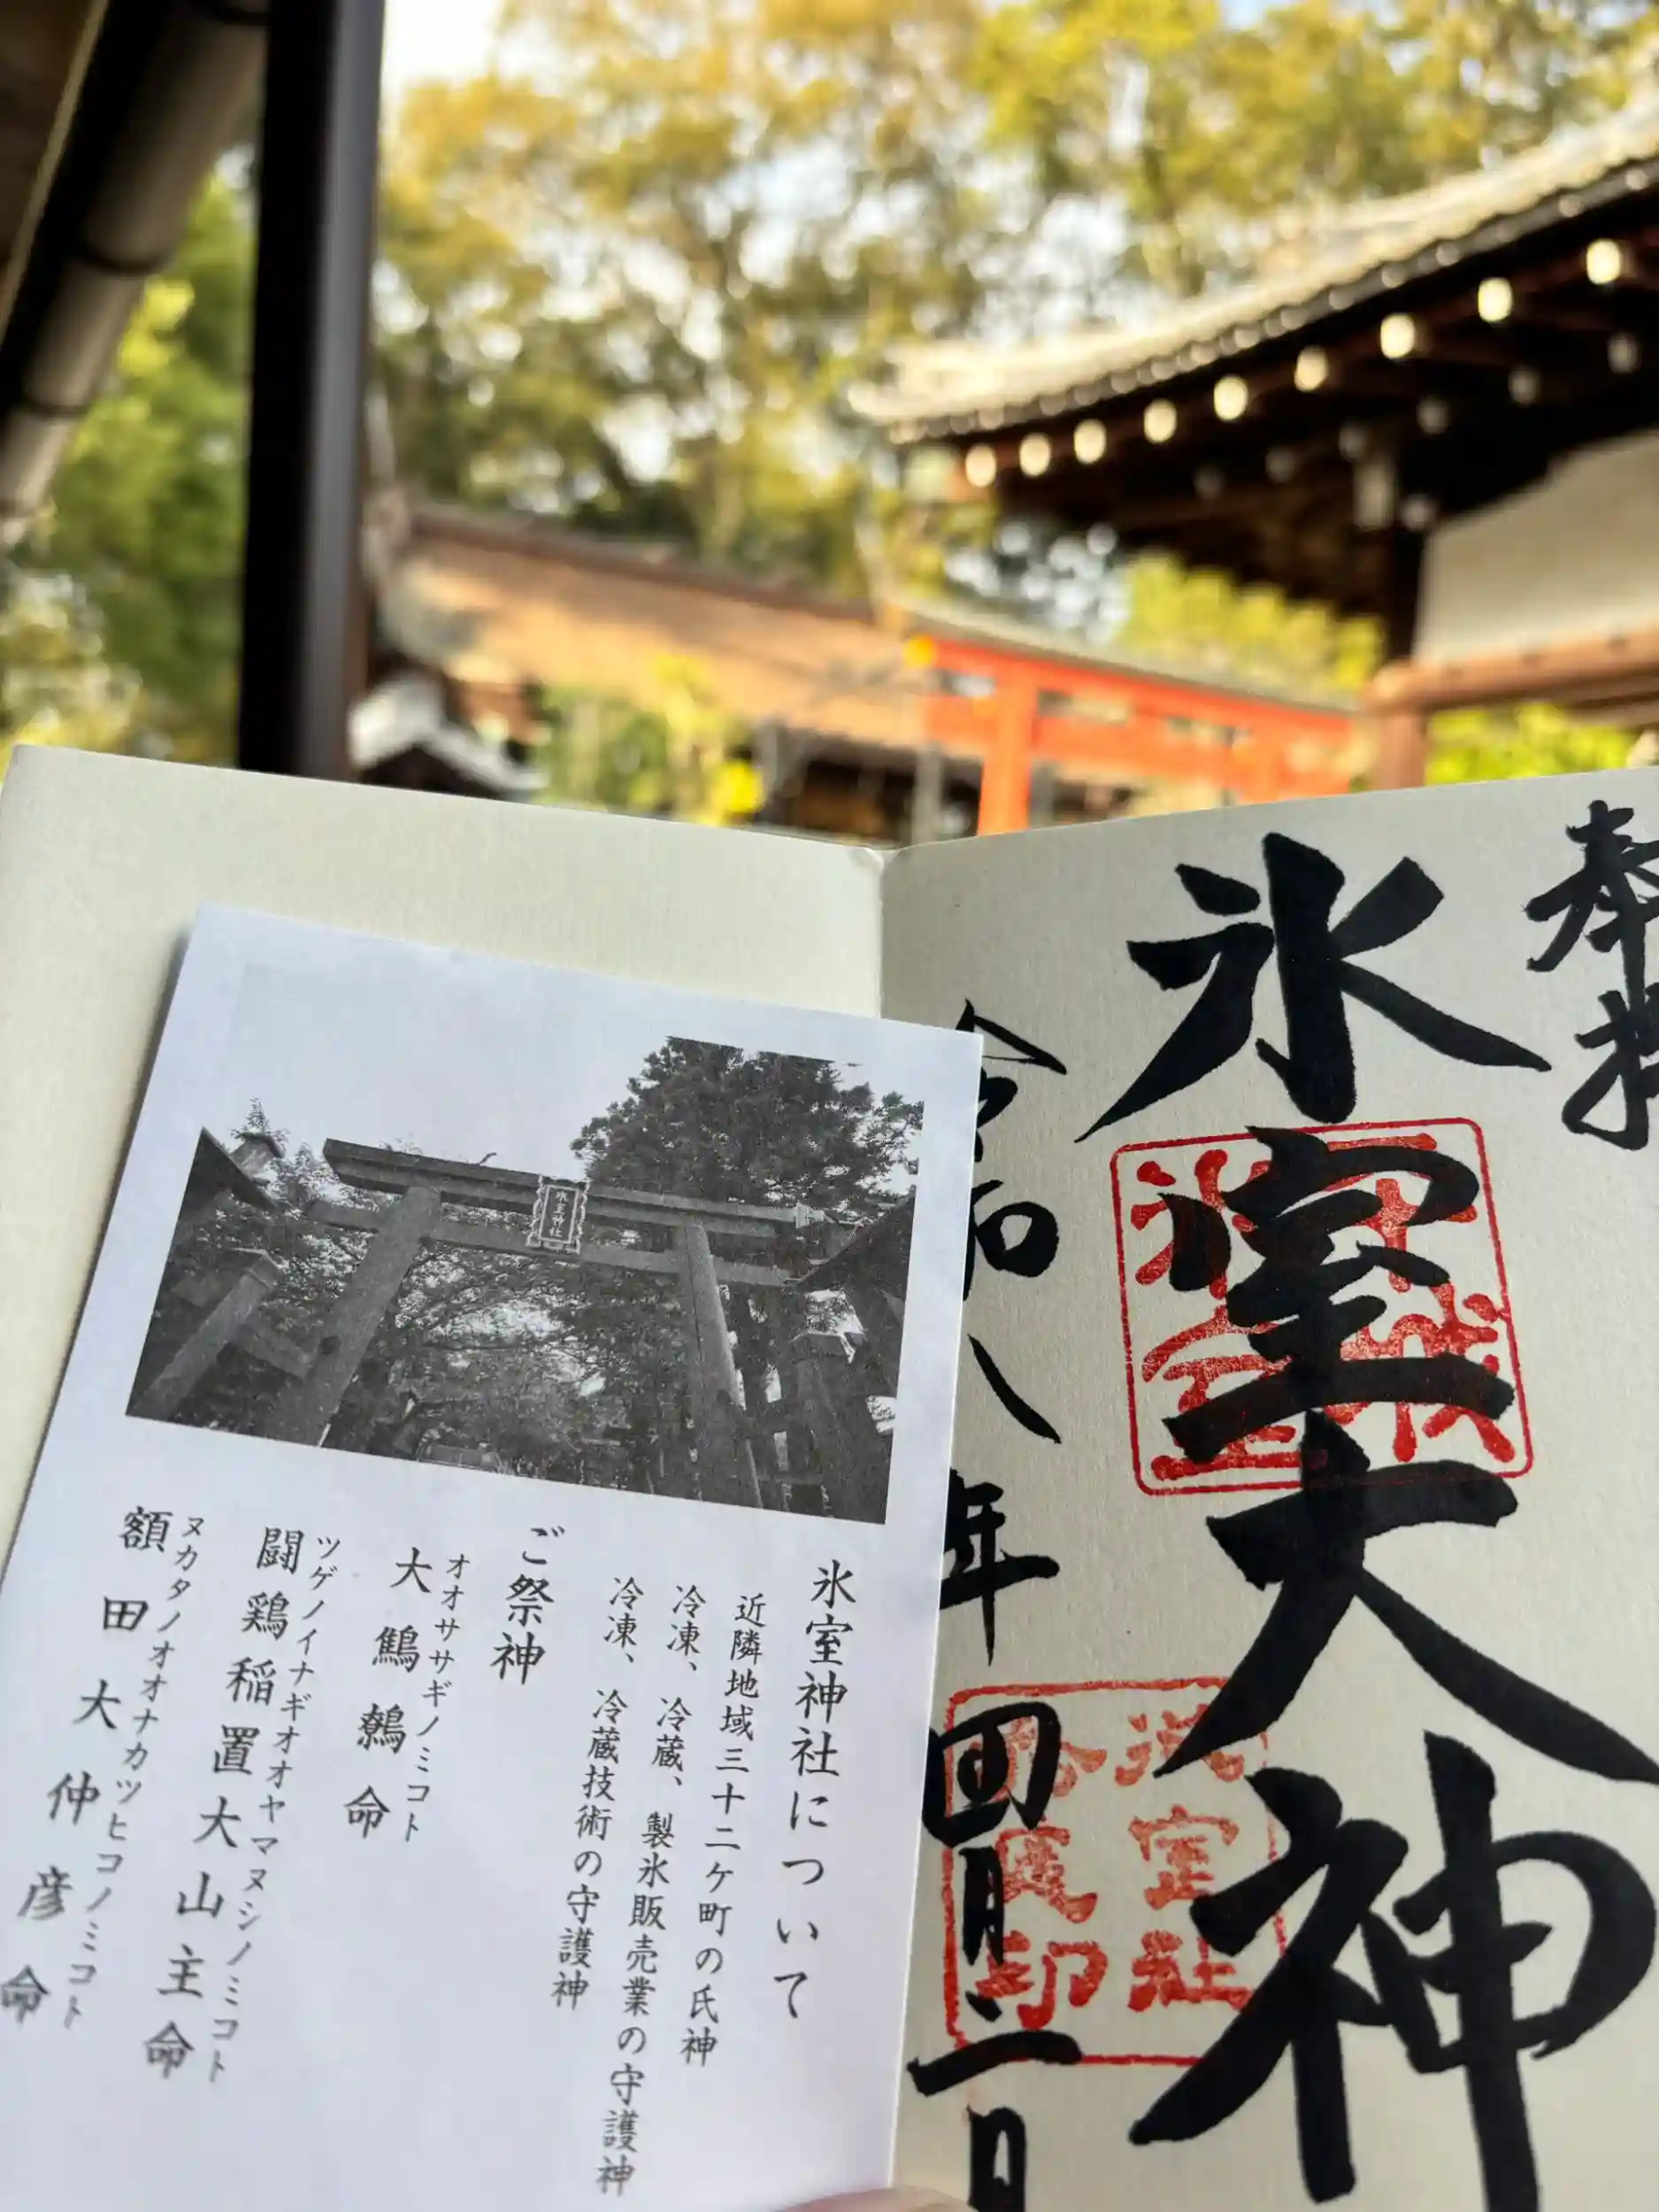 奉拝
氷室大神
平城
氷室
令和八年四月二日
氷室社
氷室神社
氷室神社について
近隣地域三十二ケ町の氏神
冷凍、冷蔵、製氷販売業の守護神
冷凍、冷蔵技術の守護神
ご祭神
オオササギノミコト
大鷦鷯命
ツゲノイナギオオヤマヌシノミコト
闘鶏稲置大山主命
ヌカタノオオナカツヒコノミコト
額田大仲彦命